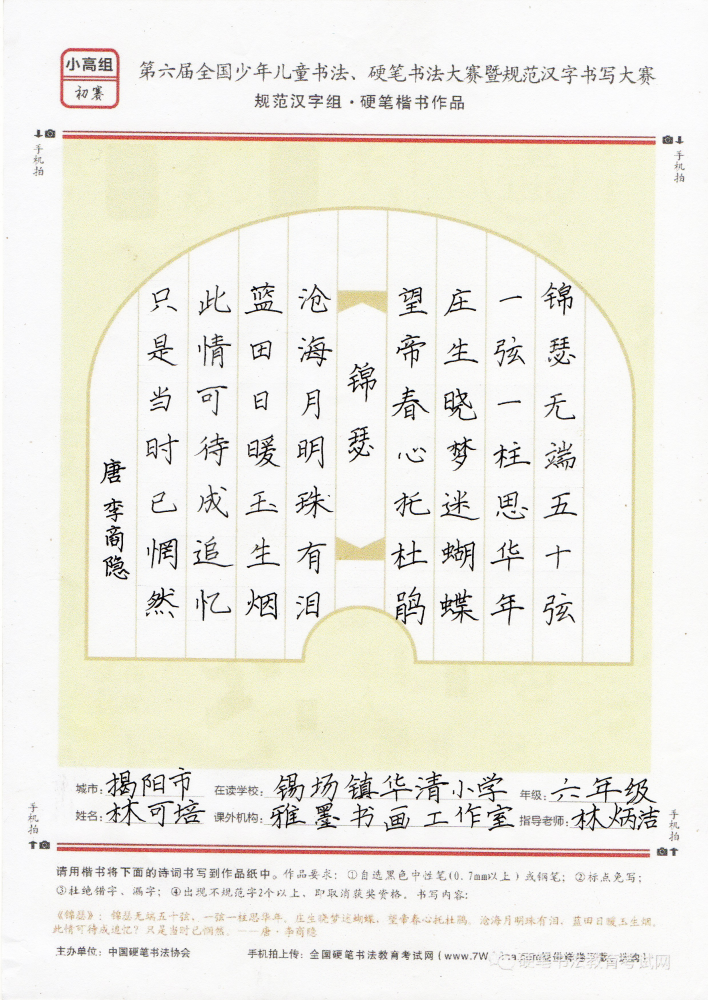 小高组
初赛
第六届全国少年儿童书法、硬笔书法大赛暨规范汉字书写大赛
规范汉字组·硬笔楷书作品
手机拍
手机拍
锦瑟无端五十弦
一弦一柱思华年
庄生晓梦迷蝴蝶
望帝春心托杜鹃
锦瑟
沧海月明珠有泪
蓝田日暖玉生烟
此情可待成追忆
只是当时已惘然
唐 李商隐
城市：揭阳市 在读学校：锡场镇华清小学 年级：六年级
姓名：林可培 课外机构：雅墨书画工作室 指导老师：林炳洁
手机拍
手机拍
请用楷书将下面的诗词书写到作品纸中。作品要求：①自选黑色中性笔(0.7mm以上)或钢笔；②标点免写；
③杜绝错字、漏字；④出现不规范字2个以上，即取消获奖资格。书写内容：
《锦瑟》：锦瑟无端五十弦，一弦一柱思华年。庄生晓梦迷蝴蝶，望帝春心托杜鹃。沧海月明珠有泪，蓝田日暖玉生烟。
此情可待成追忆？只是当时已惘然。——唐·李商隐
主办单位：中国硬笔书法协会 手机拍上传：全国硬笔书法教育考试网（www.7W
硬笔书法教育考试网